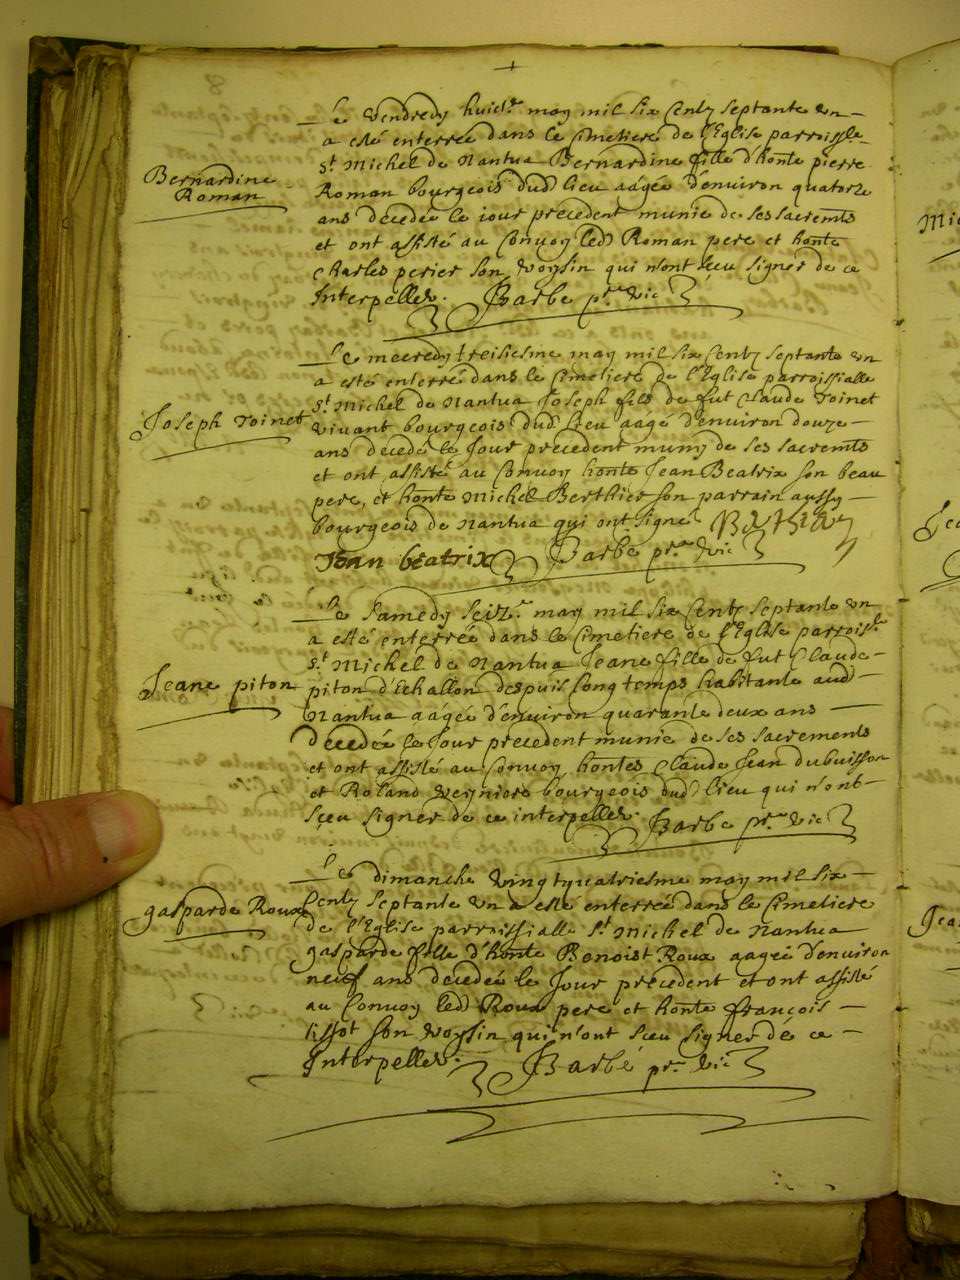 Le vendredy huict.e may mil six Centz Septante un
a esté enterrée dans le Cimetiere de l'Eglise parroiss.le
S.t Michel de Nantua Bernardine fille d'hon.te pierre
Bernardine
Roman
Roman bourgeois dud. lieu aâgée d'environ quatorze
ans decedée le iour precedent munie de ses sacrem.ts
et ont assisté au Convoy led. Roman pere et hon.te
Charles perier son voysin qui n'ont sceu signer de ce
Interpellez. Barbe p.re vic.
Le mecredy treisiesme may mil six Centz septante un
a esté enterré dans le Cimetiere de l'Eglise parroissialle
S.t Michel de Nantua Joseph fils de fut Claude Toinet
Joseph Toinet
vivant bourgeois dud. lieu aâgé d'environ douze
ans decedé le Jour precedent muny de ses sacrem.ts
et ont assisté au Convoy hon.te Jean Beatrix son beau
pere, et hon.te Michel Berthier son parrain aussy
bourgeois de Nantua qui ont signé
Jean beatrix Barbe p.re vic.
Le Samedy seiz.e may mil six Centz septante un
a esté enterrée dans le Cimetiere de l'Eglise parrois.le
S.t Michel de Nantua Jeane fille de fut Claude
Jeane piton
piton d'Echallon despuis long temps habitante aud.
Nantua aâgée d'environ quarante deux ans
decedée le Jour precedent munie de ses sacrements
et ont assisté au Convoy hon.tes Claude Jean dubuisson
et Roland bourgeois dud. lieu qui n'ont
sceu signer de ce interpellez. Barbe p.re vic.
Le dimanche vingtquatriesme may mil six
gasparde Roux
Centz septante un a esté enterrée dans le Cimetiere
de l'Eglise parroissialle S.t Michel de Nantua
gasparde fille d'hon.te Benoist Roux aagée d'environ
neuf ans decedée le Jour precedent et ont assisté
au Convoy led. Roux pere et hon.te françois
tissot son voysin qui n'ont sceu signer de ce
Interpellez. Barbe p.re vic.